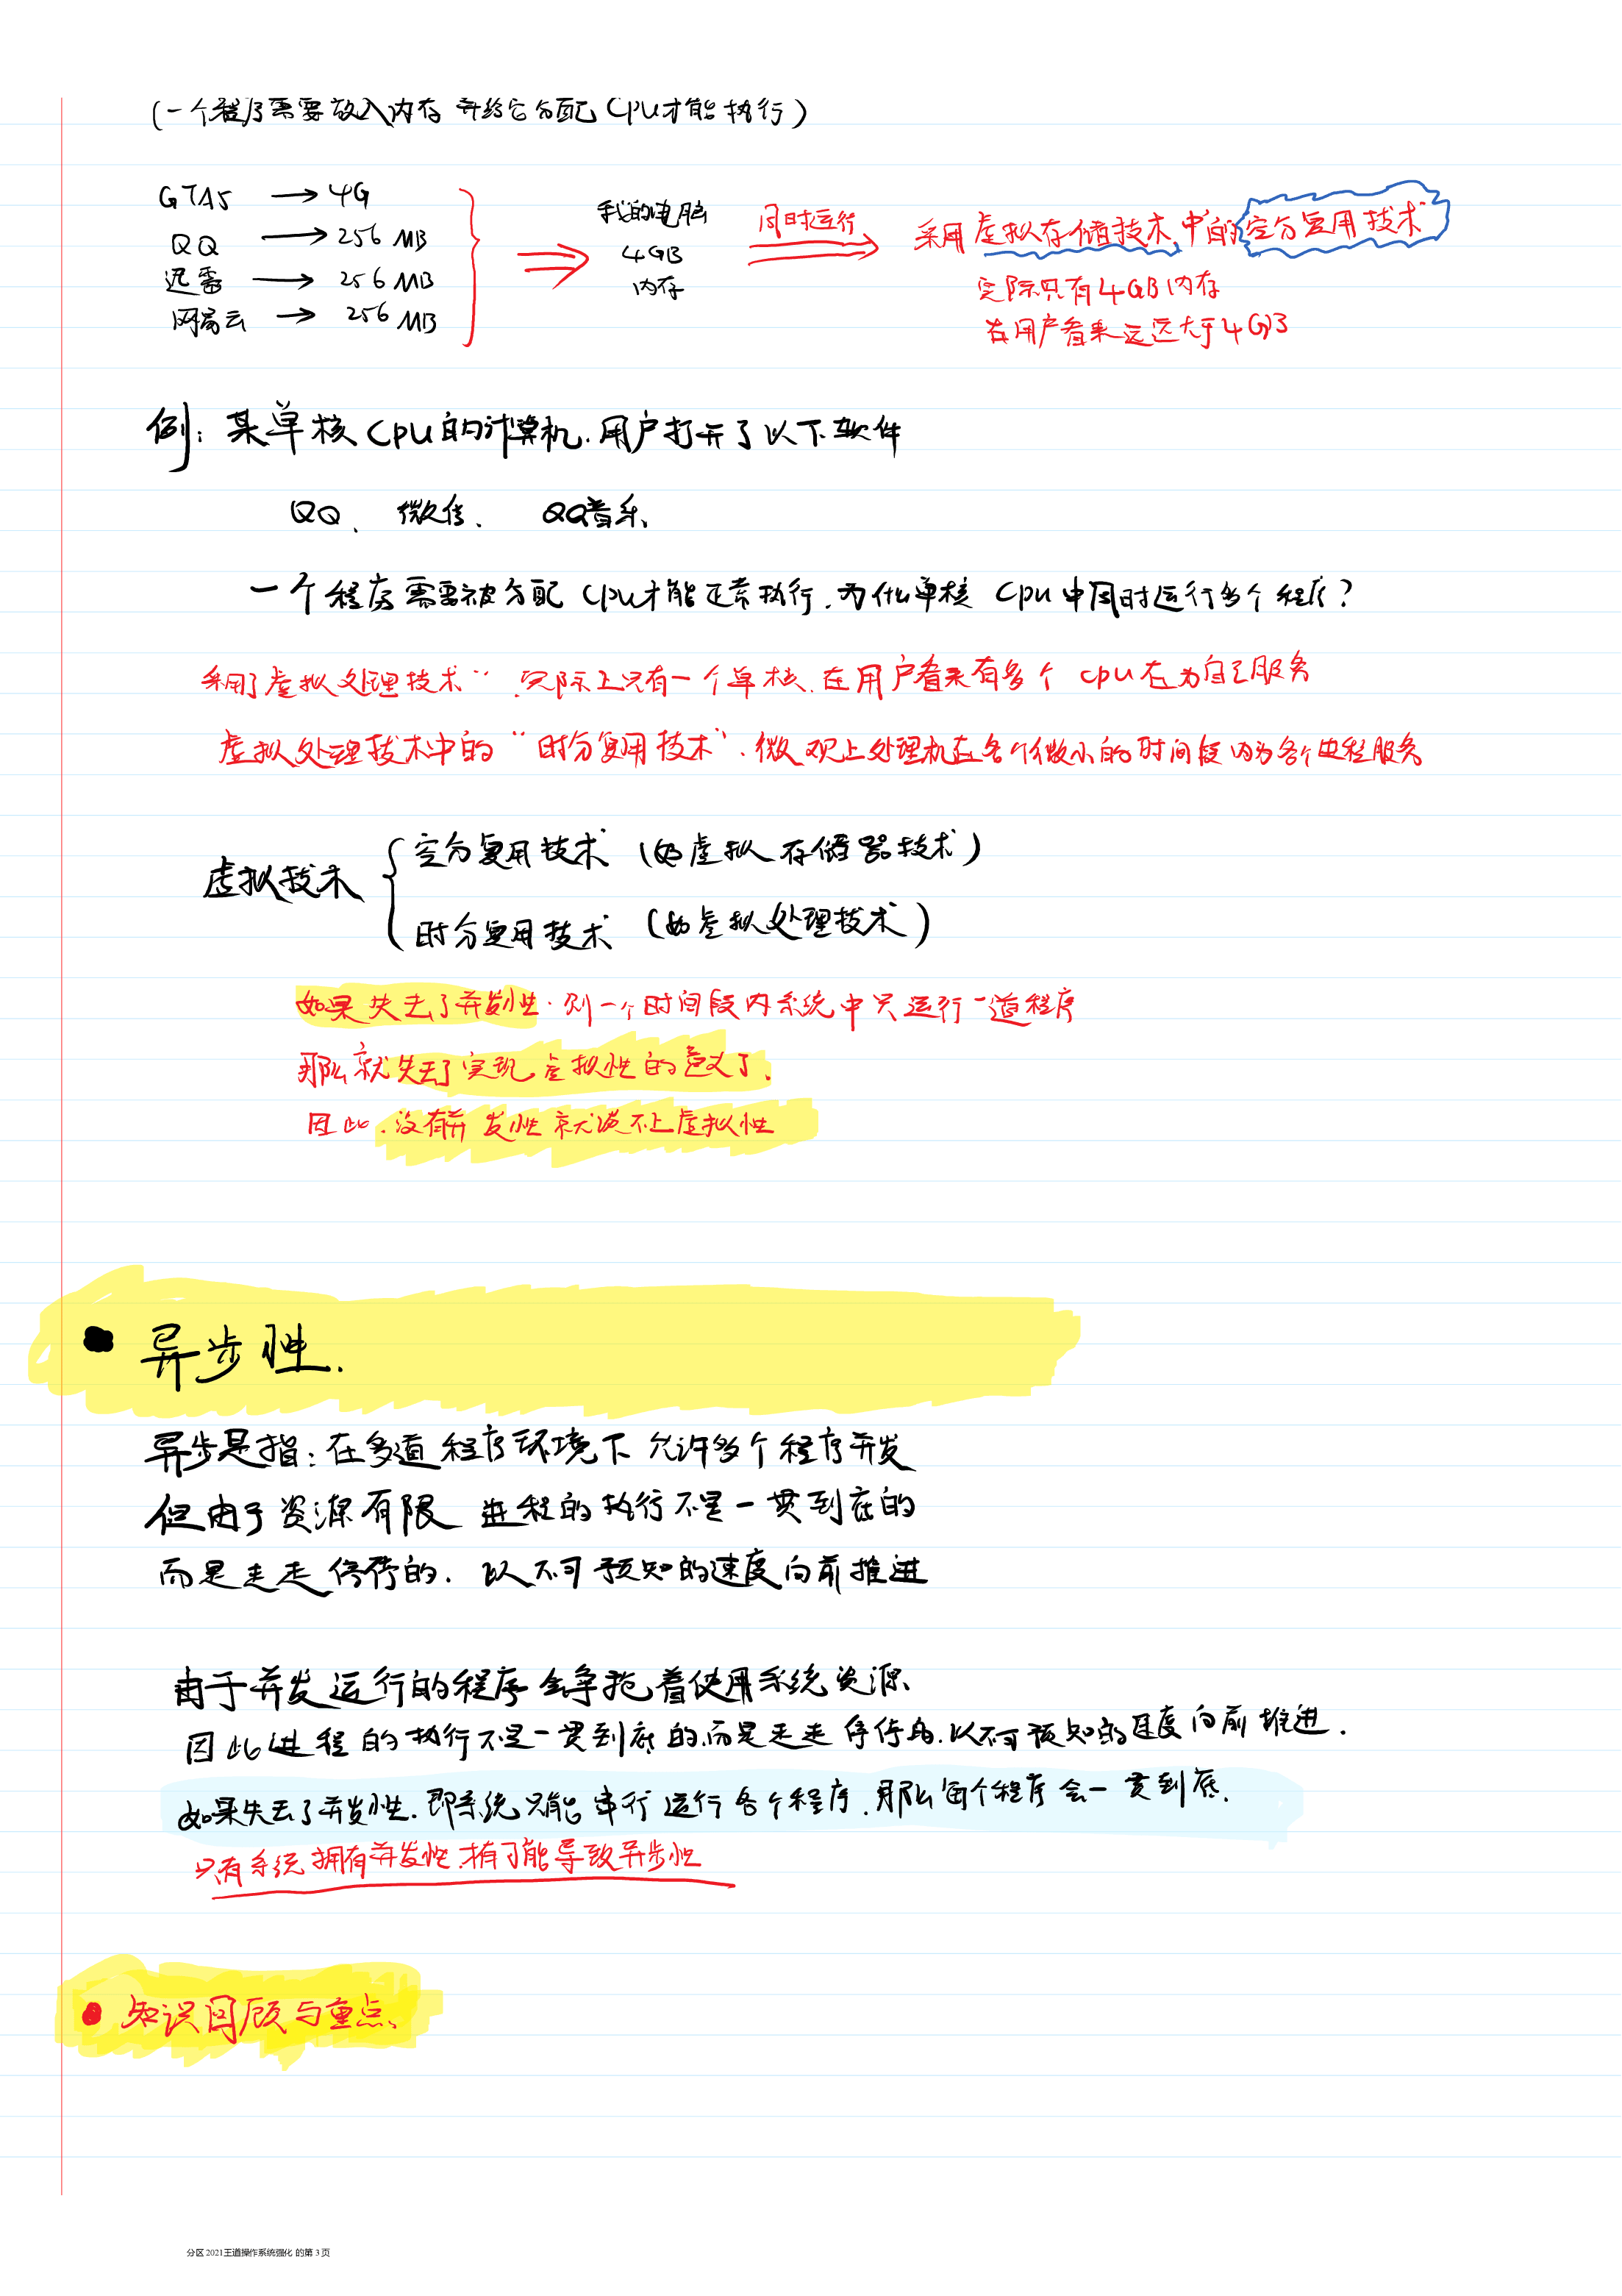 (一个程序需要放入内存 并给它分配CPU才能执行)
GTA5 → 4G
QQ → 256 MB
迅雷 → 256 MB
网易云 → 256 MB
我的电脑
4GB
内存
同时运行
采用虚拟存储技术中的"空分复用技术"
实际只有4GB内存
在用户看来远远大于4GB
例：某单核CPU的计算机，用户打开了以下软件
QQ、 微信、 QQ音乐、
一个程序需要被分配CPU才能正常执行，为什么单核CPU中同时运行多个程序？
采用了虚拟处理技术"，实际上只有一个单核，在用户看来有多个cpu在为自己服务
虚拟处理技术中的"时分复用技术"，微观上处理机在各个微小的时间段内为各个进程服务
虚拟技术
空分复用技术 (如虚拟存储器技术)
时分复用技术 (如虚拟处理技术)
如果失去了并发性，则一个时间段内系统中只运行一道程序
那么就失去了实现虚拟性的意义了，
因此，没有并发性就谈不上虚拟性
• 异步性.
异步是指：在多道程序环境下 允许多个程序并发
但由于资源有限 进程的执行不是一贯到底的
而是走走停停的，以不可预知的速度向前推进
由于并发运行的程序会争抢着使用系统资源、
因此进程的执行不是一贯到底的，而是走走停停的，以不可预知的速度向前推进.
如果失去了并发性，即系统只能串行运行各个程序，那么每个程序会一贯到底.
只有系统拥有并发性，才有可能导致异步性
• 知识回顾与重点、
分区 2021王道操作系统强化 的第 3 页